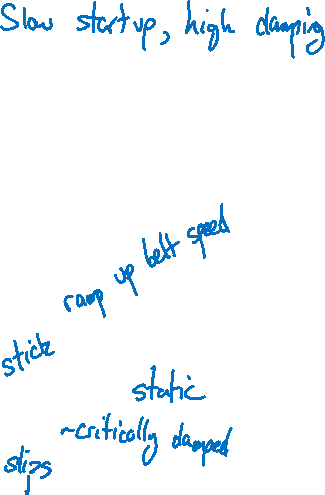 Slow startup, high damping
ramp up belt speed
stick
static
~critically damped
slips